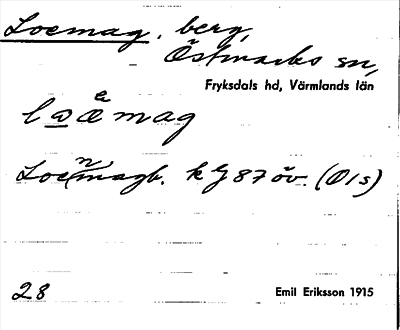 Loemag, berg,
Östmarks sn,
Fryksdals hd, Värmlands län
Loe(n)magb. k g 87 öv. (Ols)
28
Emil Eriksson 1915